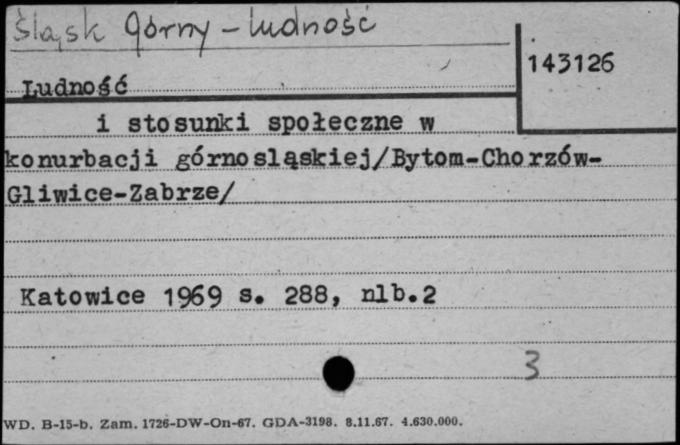 Śląsk Górny - ludność
143126
Ludność
i stosunki społeczne w
konurbacji górnośląskiej/Bytom-Chorzów-
Gliwice-Zabrze/
Katowice 1969 s. 288, nlb.2
3
WD. B-15-b. Zam. 1726-DW-On-67. GDA-3198. 8.11.67. 4.630.000.